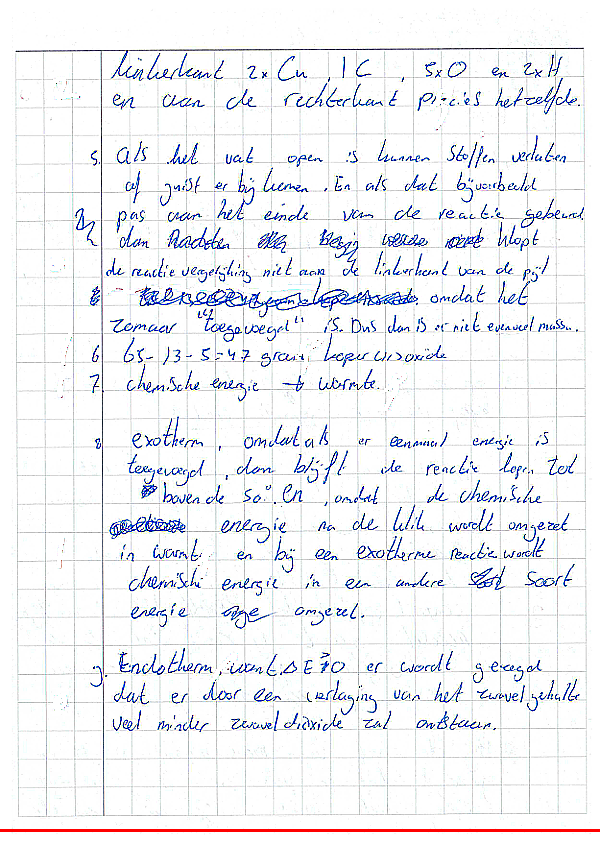 linkerkant 2x Cu, 1 C, 5x O en 2x H
en aan de rechterkant precies hetzelfde.
5. als het vat open is kunnen stoffen verlaten
of juist er bij komen. En als dat bijvoorbeeld
pas aan het einde van de reactie gebeurd
dan klopt
de reactie vergelijking niet aan de linkerkant van de pijl
omdat het
zomaar "toegevoegd" is. Dus dan is er niet evenveel massa.
6 65-13-5=47 gram koper
7. chemische energie → warmte.
8 exotherm, omdat als er eenmaal energie is
toegevoegd, dan blijft de reactie lopen tot
boven de 50°. En, omdat de chemische
energie na de klik wordt omgezet
in warmte en bij een exotherme reactie wordt
chemische energie in een andere soort
energie omgezet.
9. Endotherm, want ΔE>0 er wordt gezegd
dat er door een verlaging van het zwavelgehalte
veel minder zwaveldioxide zal ontstaan.